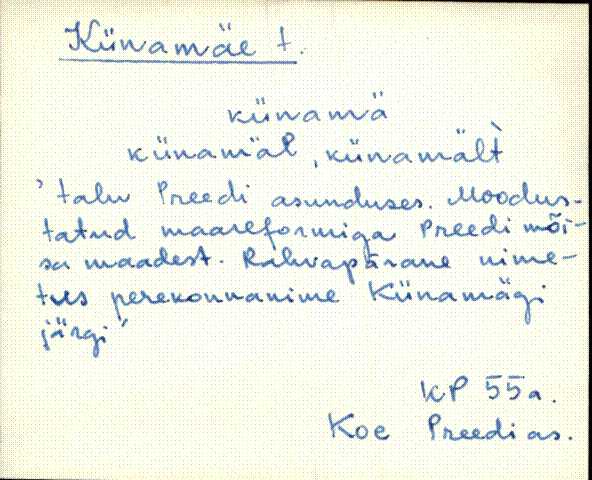 Künamäe t.
künamä
künamäl, künamält
'talu Preedi asunduses. Moodus-
tatud maareformiga Preedi mõi-
sa maadest. Rahvapärane nime-
tus perekonnanime Künamägi
järgi"
KP 55a.
Koe Preedi as.